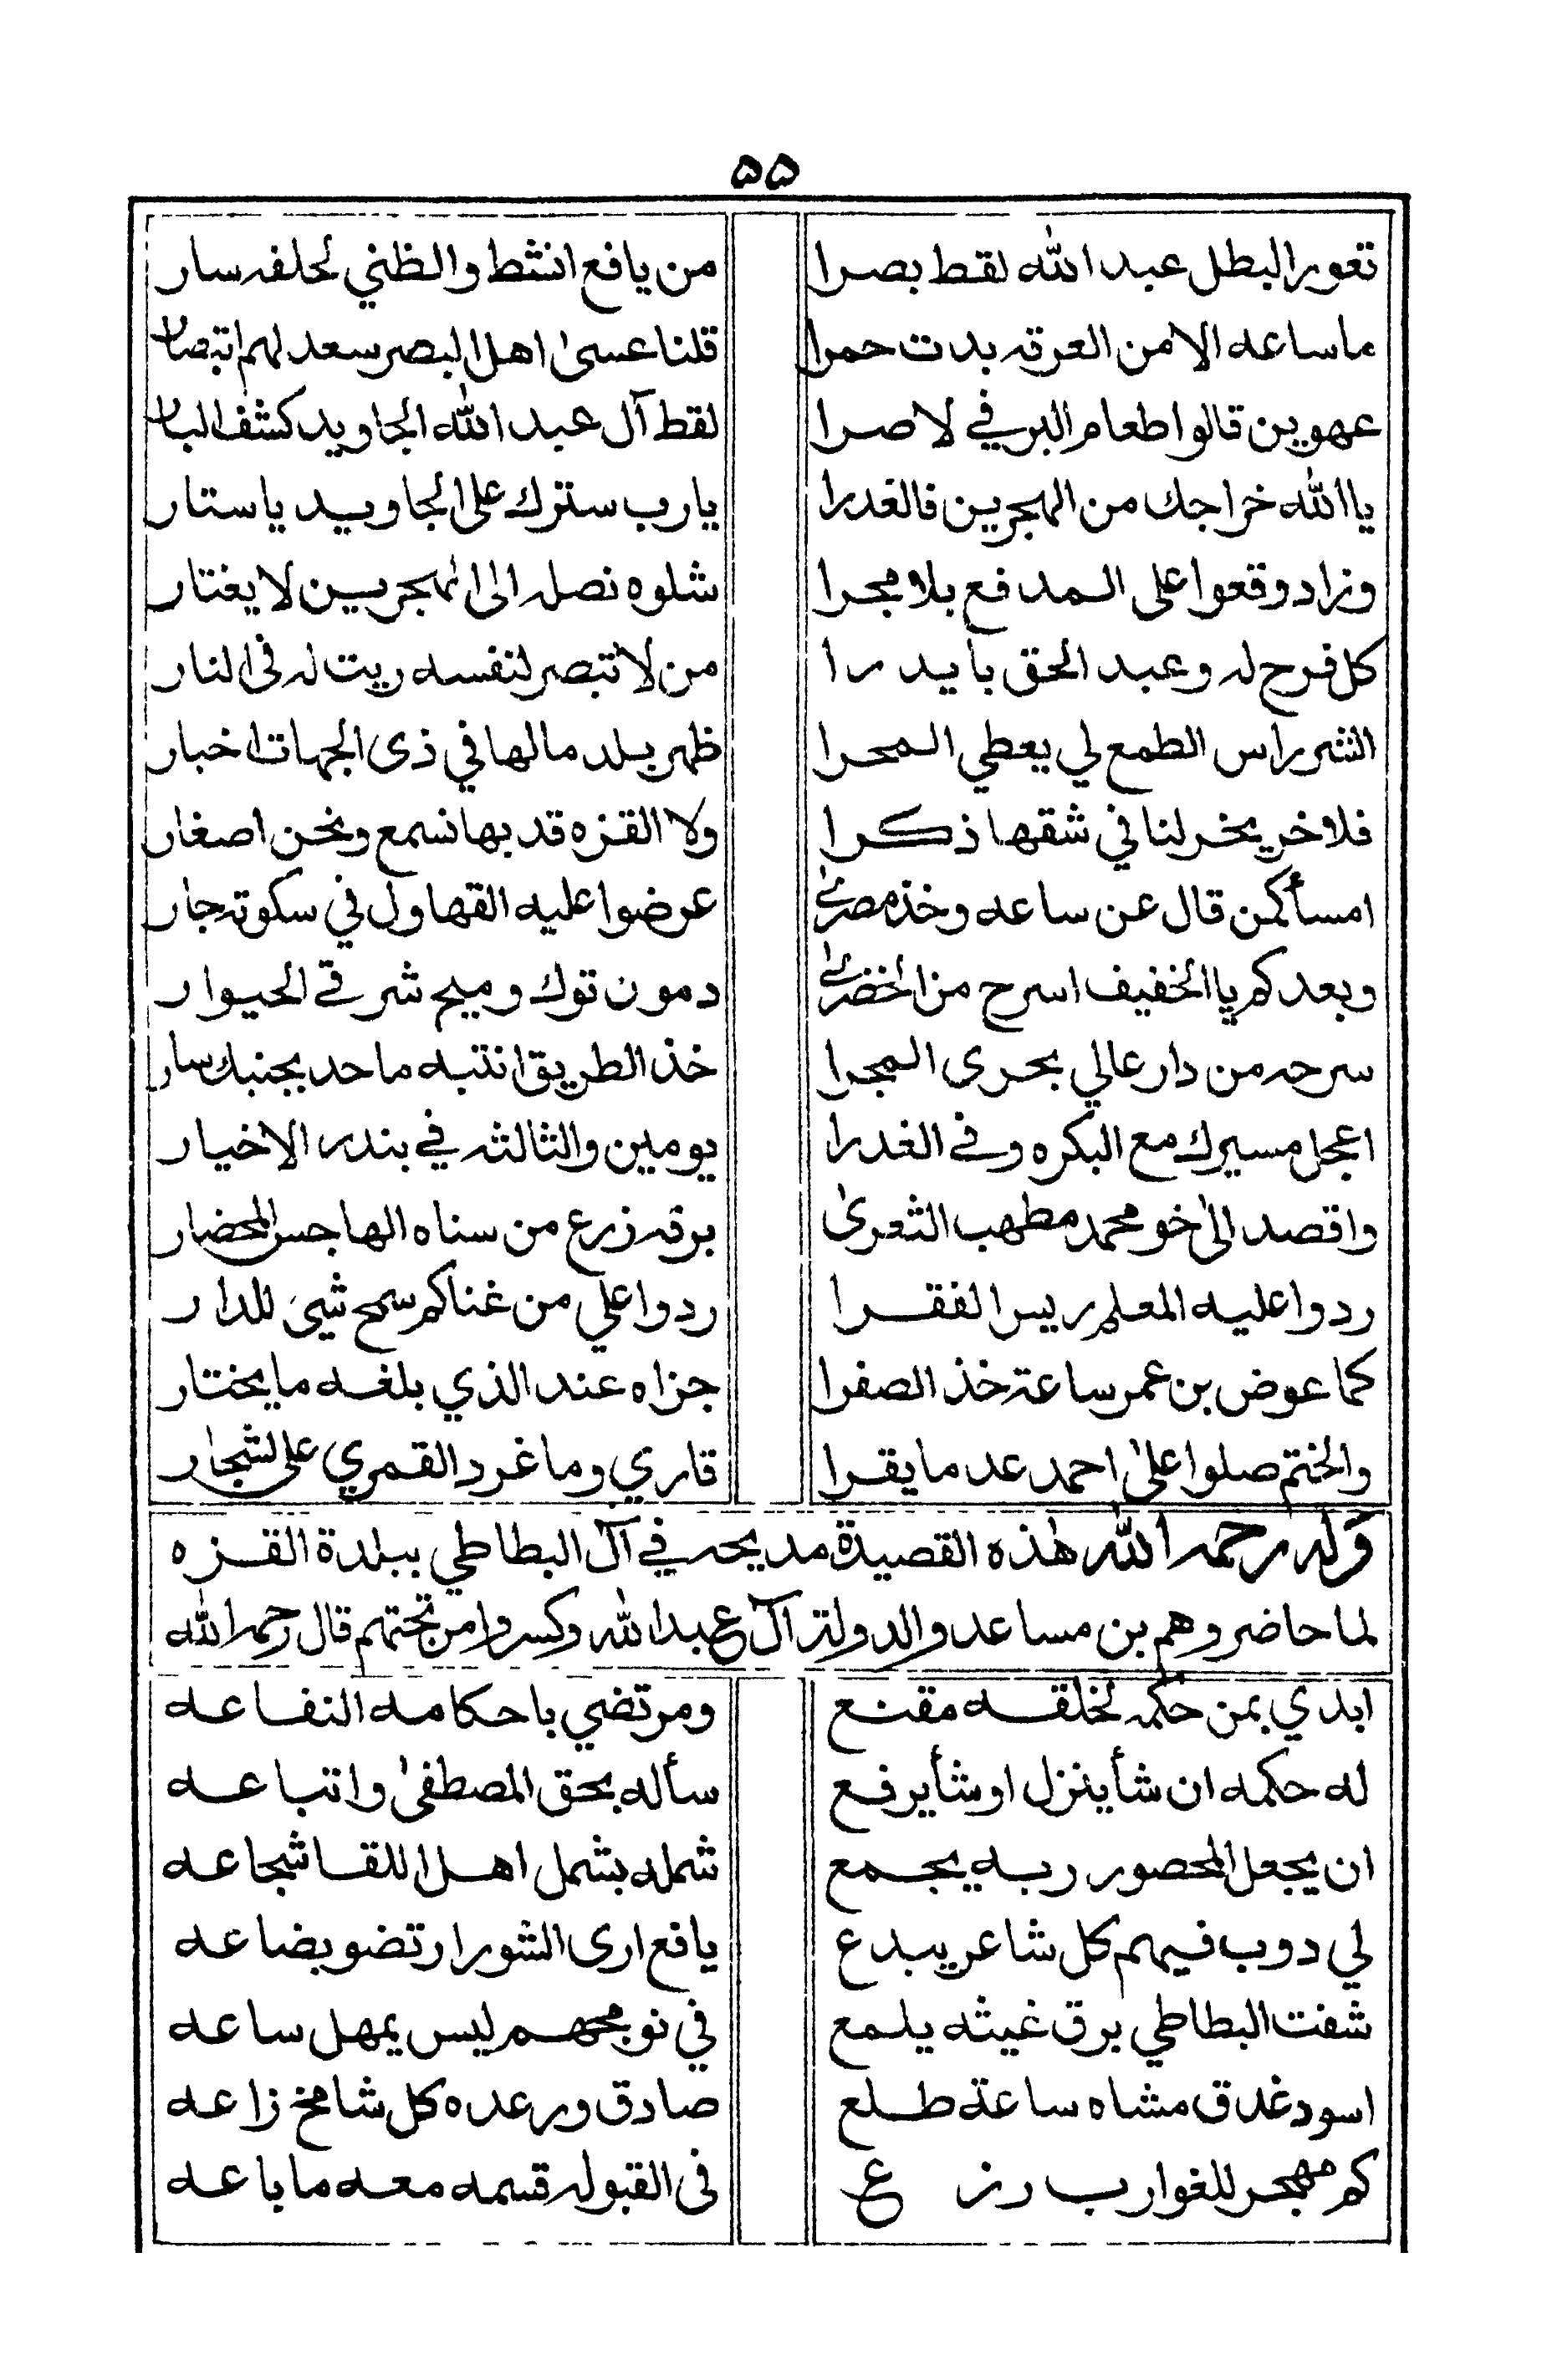 ٥٥
تعور البطل عبد الله لقط بصرا من يافع انشط والظني لحلفه سار
ما ساعه الا من العرقه بدت حمرا قلنا عسىٰ اهل البصر سعد لهم اتبصار
عهوين قالوا طعام البر في لا صرا لقط آل عبد الله الجاويد كشف البار
يا الله خراجك من المهجرين فالغدرا يارب سترك على الجاويد يا ستار
وزاد وقعوا على المدفع بلا مجرا شلوه نصله الى المهجرين لا يغتار
كل فرح له وعبد الحق بايدرا من لا تبصر لنفسه ريت له فى النار
الشر راس الطمع لي يعطي المحرا ظهر بلد مالها في ذى الجهات اخبار
فلا خر يخر لنا في شقها ذكرا ولا القزه قد بها نسمع ونحن اصغار
امسأكمن قال عن ساعه وخذ مصرىٰ عرضوا عليه القهاول في سكوته جار
وبعدكم يا الخفيف اسرح من الخضرىٰ دمون توك وميح شرقي الحيوار
سرحه من دار عالي بحرى المجرا خذ الطريق انتبه ما حد بجنبك سار
اعجل مسيرك مع البكره وفي الغدرا يومين والثالثه في بندر الاخيار
واقصد الىٰ خو محمد مطهب الثعرىٰ برقه زرع من سناه الهاجس المحضار
ردوا عليه المعلم ريس الفقرا ردوا علي من غناكم سمح شيئ للدار
كما عوض بن عمر ساعة خذ الصفرا جزاه عند الذي بلغه ما يختار
والختم صلوا علىٰ احمد عد ما يقرا قاري وما غرد القمري على لشجار
وله رحمه الله هٰذه القصيدة مديحه في آل البطاطي ببلدة القزه
لما حاضروهم بن مساعد والدولة آل عبد الله وكسروا من تحتهم قال رحمه الله
ابدي بمن حكمه لخلقه مقنع ومرتضي باحكامه النفاعه
له حكمه ان شأ ينزل او شأ يرفع سأله بحق المصطفىٰ واتباعه
ان يجعل المحصور ربه يجمع شمله بشمل اهل اللقا شجاعه
لي دوب فيهم كل شاعر يبدع يافع ارى الشورا رتضو بضاعه
شفت البطاطي برق غيثه يلمع في نو محهم ليس يمهل ساعه
اسود غدق مشاه ساعة طلع صادق ورعده كل شامخ زاعه
كم مهجر للغوارب رزع فى القبوله قسمه معه ما باعه